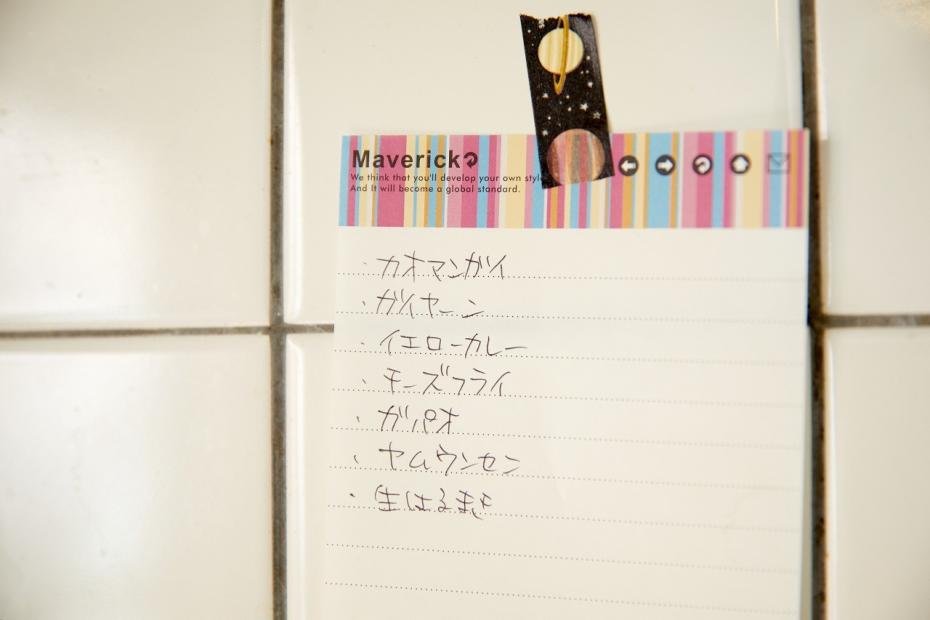 Maverick
We think that you'll develop your own style
And It will become a global standard.
・カオマンガイ
・ガイヤーン
・イエローカレー
・チーズフライ
・ガパオ
・ヤムウンセン
・生はるまき